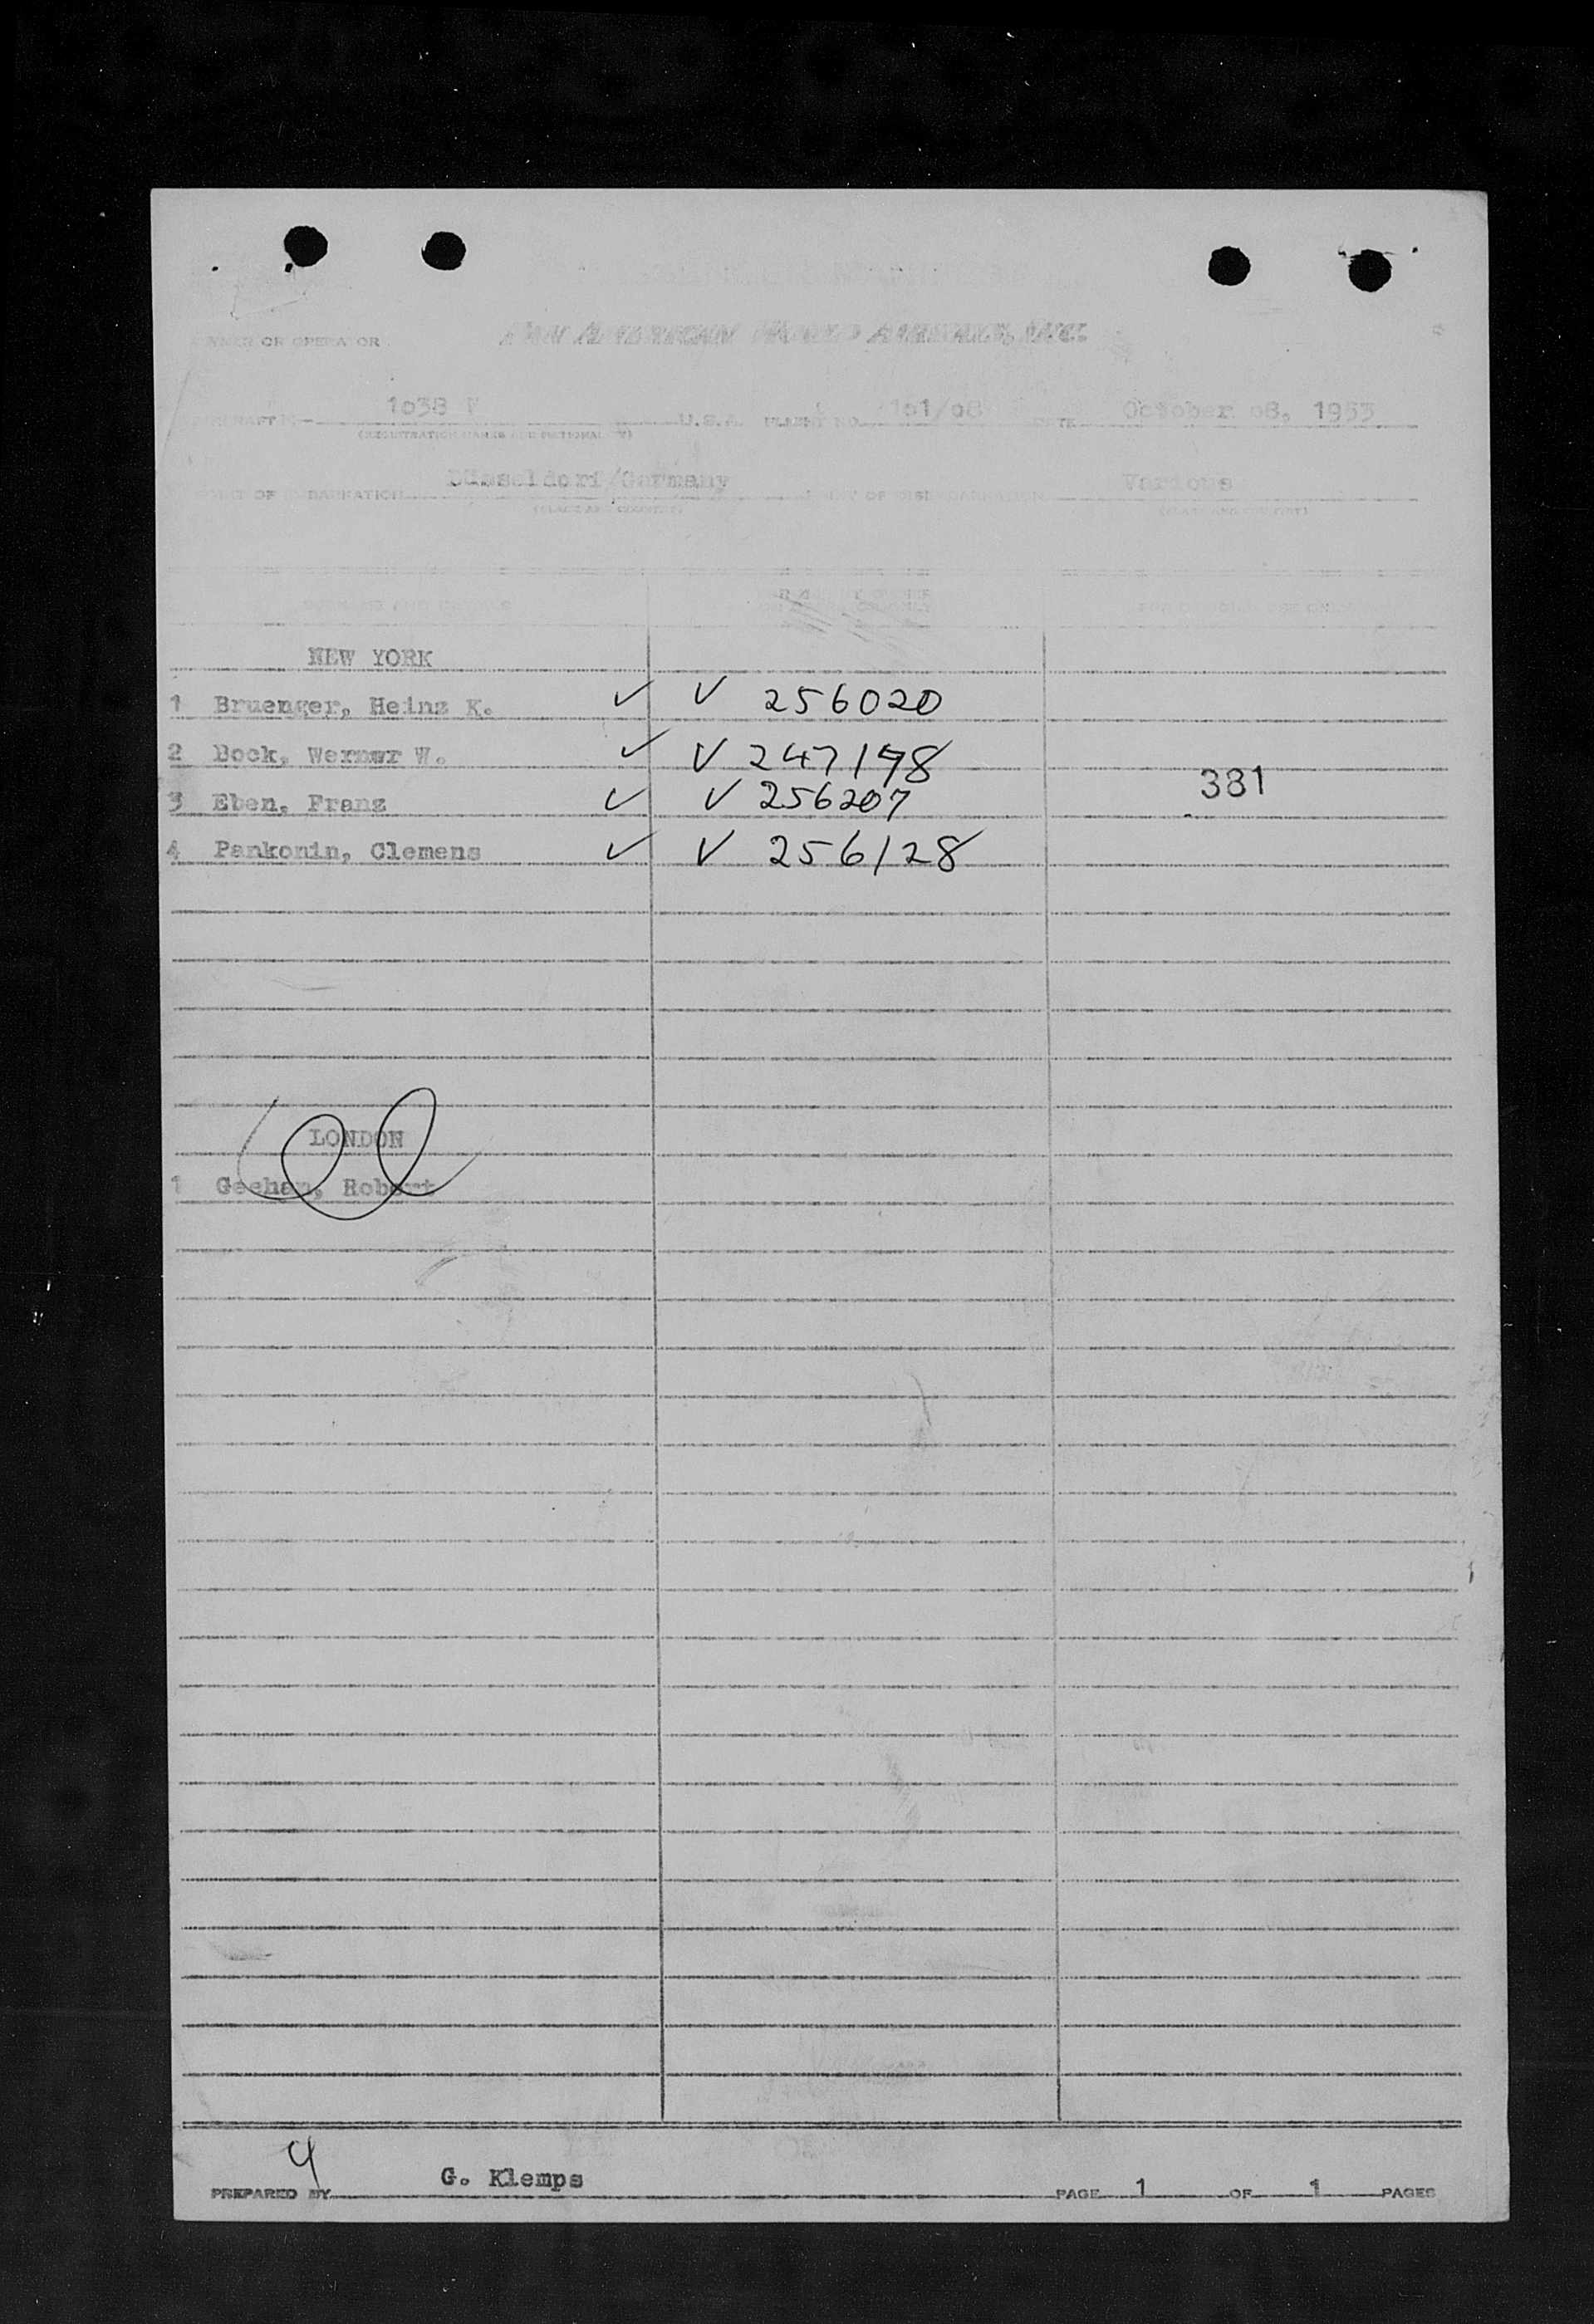 OWNER OR OPERATOR PAN AMERICAN WORLD AIRWAYS, INC.
1o38 V U.S.A. FLIGHT NO. 1o1/o8 DATE October o8, 1953
(REGISTRATION MARKS AND NATIONALITY)
POINT OF EMBARKATION Düsseldorf/Germany POINT OF DISEMBARKATION Various
(PLACE AND COUNTRY) (PLACE AND COUNTRY)
NEW YORK
1 Bruenger, Heinz K. ✓ ✓ 256020
2 Bock, Werner W. ✓ ✓ 247198
381
3 Eben, Franz ✓ ✓ 256207
4 Pankonin, Clemens ✓ ✓ 256128
LONDON
1 Geehan, Robert
4
PREPARED BY G. Klemps PAGE 1 OF 1 PAGES